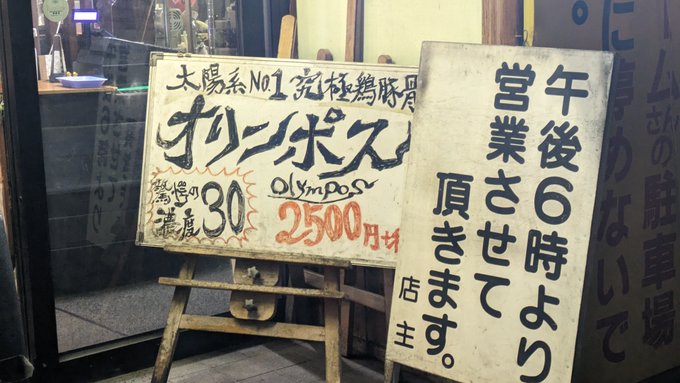 太陽系No.1究極鶏豚骨
オリンポス
Olympos
濃度30
2500円
午後6時より
営業させて
頂きます。
店主
ームさんの駐車場
に停めないで